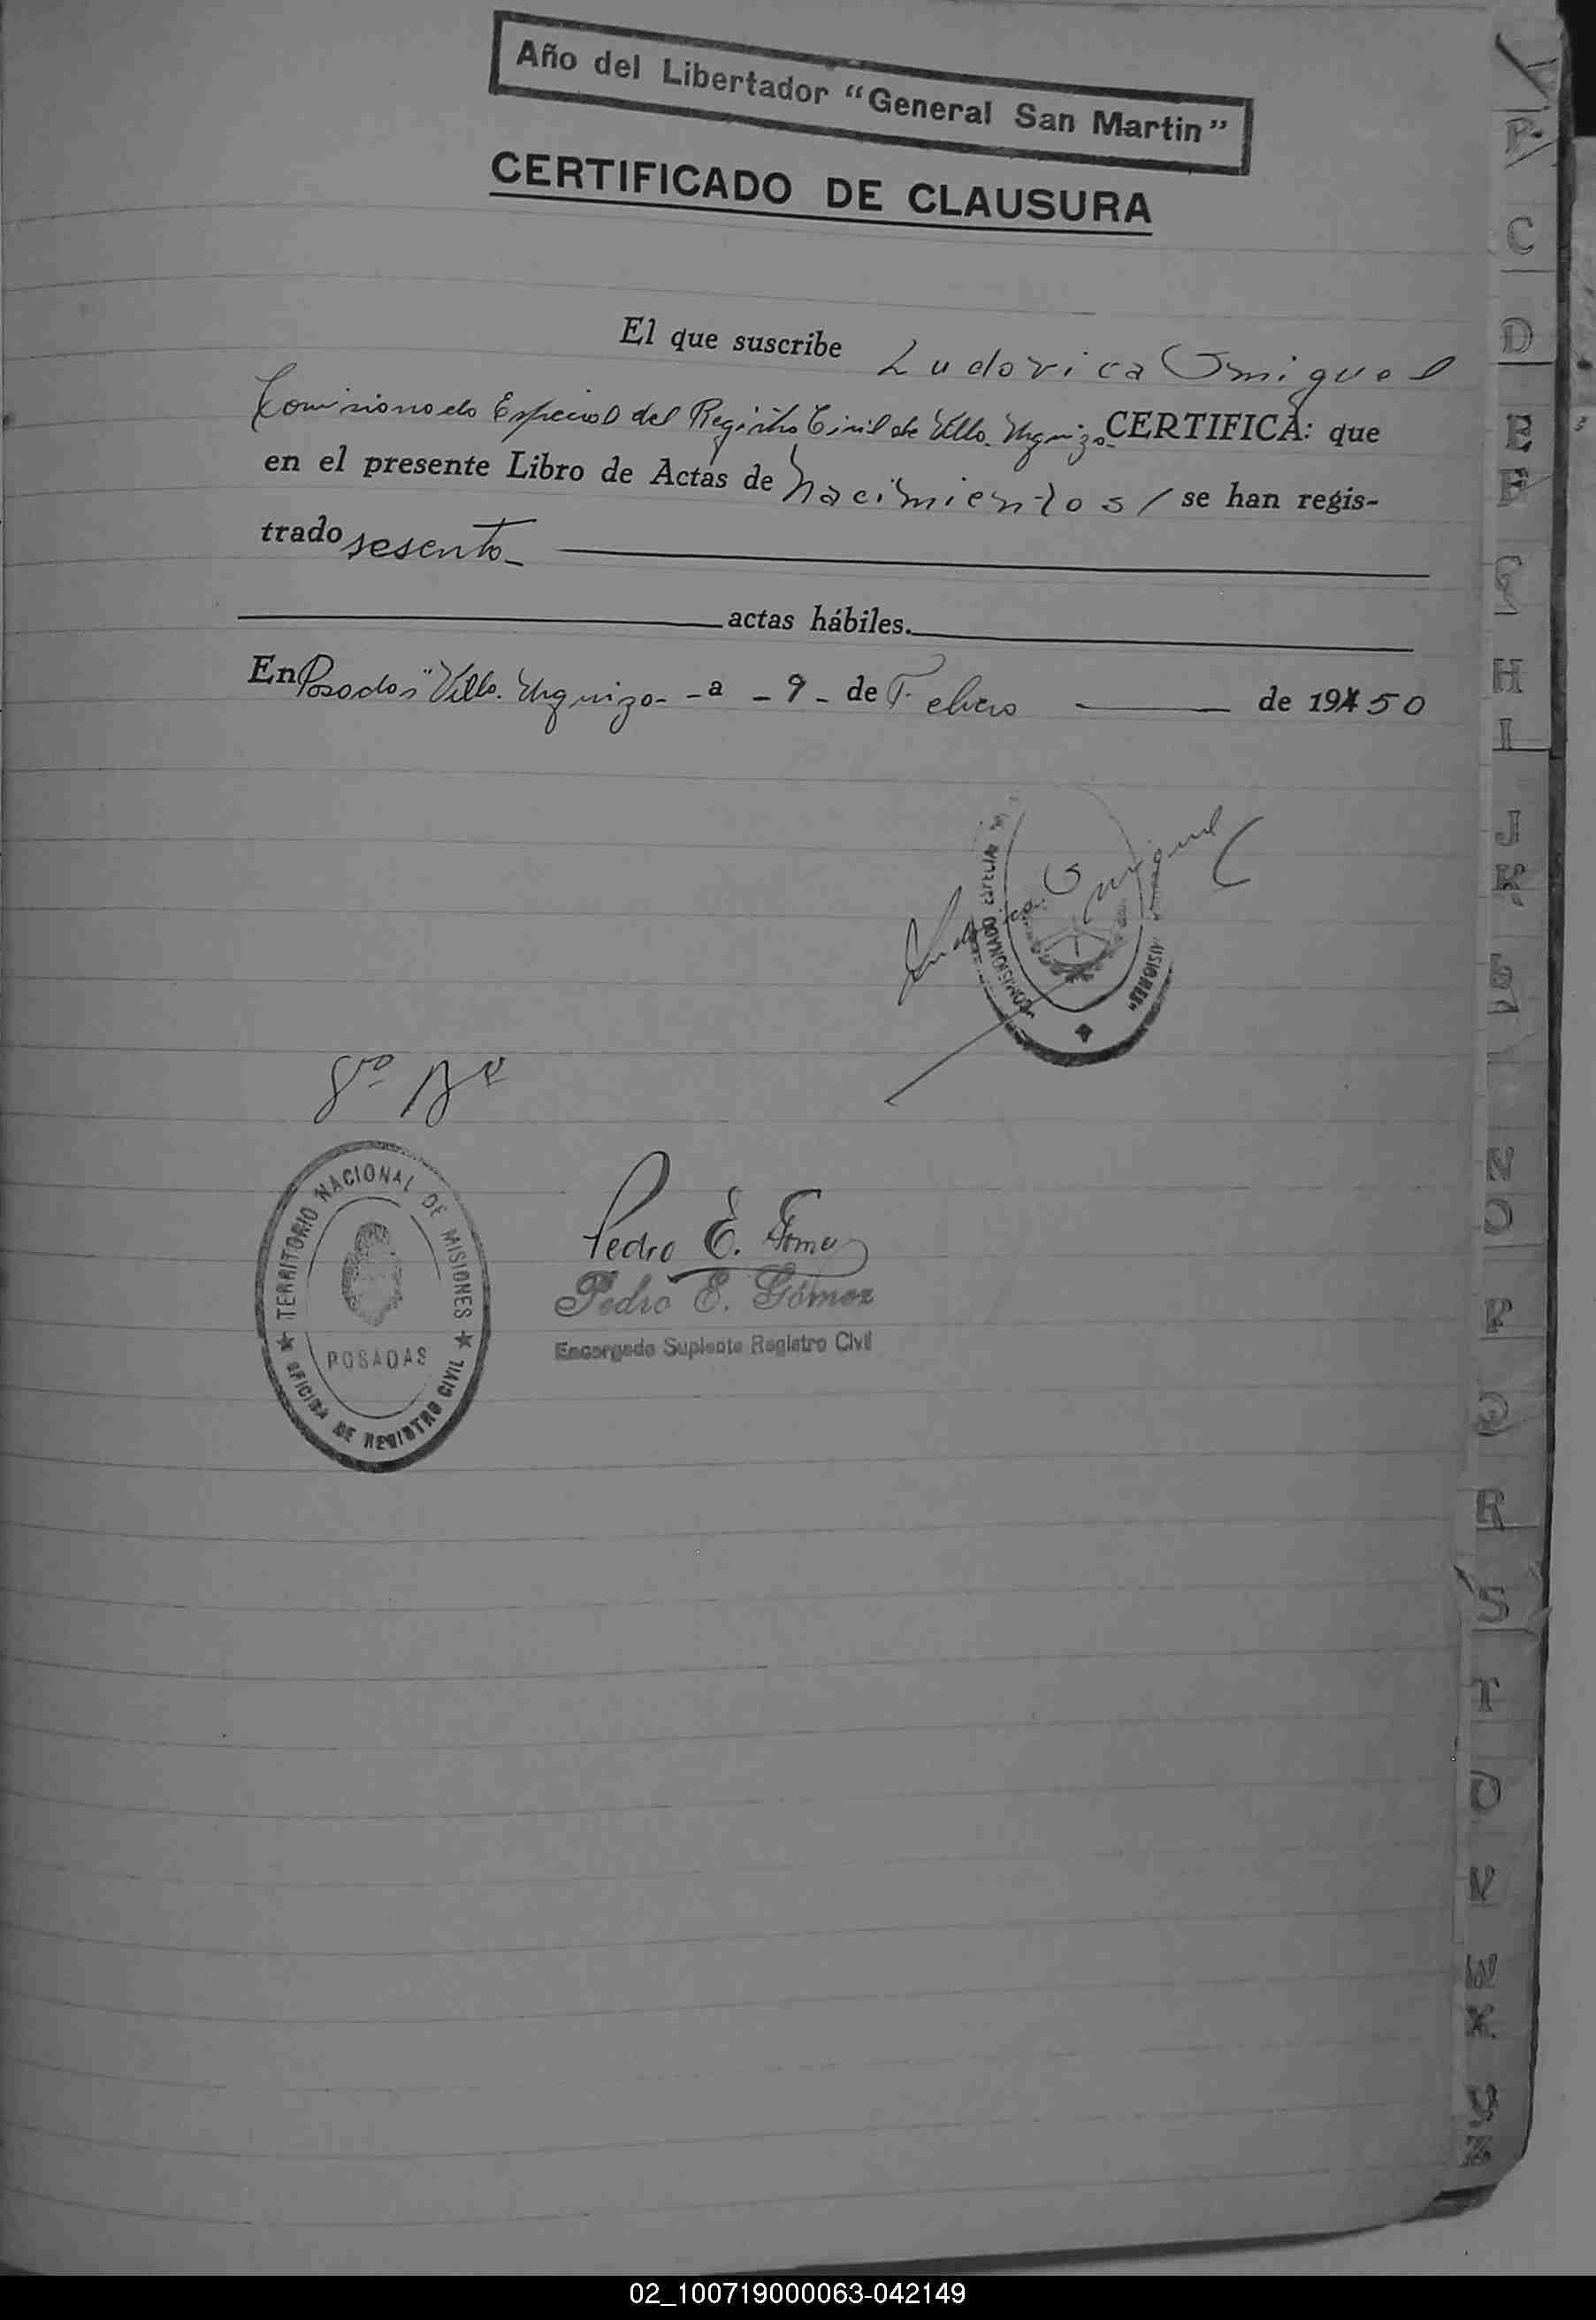 Año del Libertador “General San Martin”
CERTIFICADO DE CLAUSURA
El que suscribe Ludovica G. Miguel
Comisionado Especial del Registro Civil de Villa Urquiza CERTIFICA: que
en el presente Libro de Actas de Nacimientos/ se han regis-
trado sesenta
actas hábiles.
En Posadas "Villa Urquiza- - a - 9 - de Febrero de 19450
COMISIONADO ESPECIAL
MISIONES
Vº Bº
TERRITORIO NACIONAL DE MISIONES
POSADAS
OFICINA DE REGISTRO CIVIL
Pedro E. Gómez
Pedro E. Gómez
Encargado Suplente Registro Civil
C
D
E
F
G
H
I
J
K
L
N
O
P
Q
R
S
T
U
V
W
X
Y
Z
02_100719000063-042149